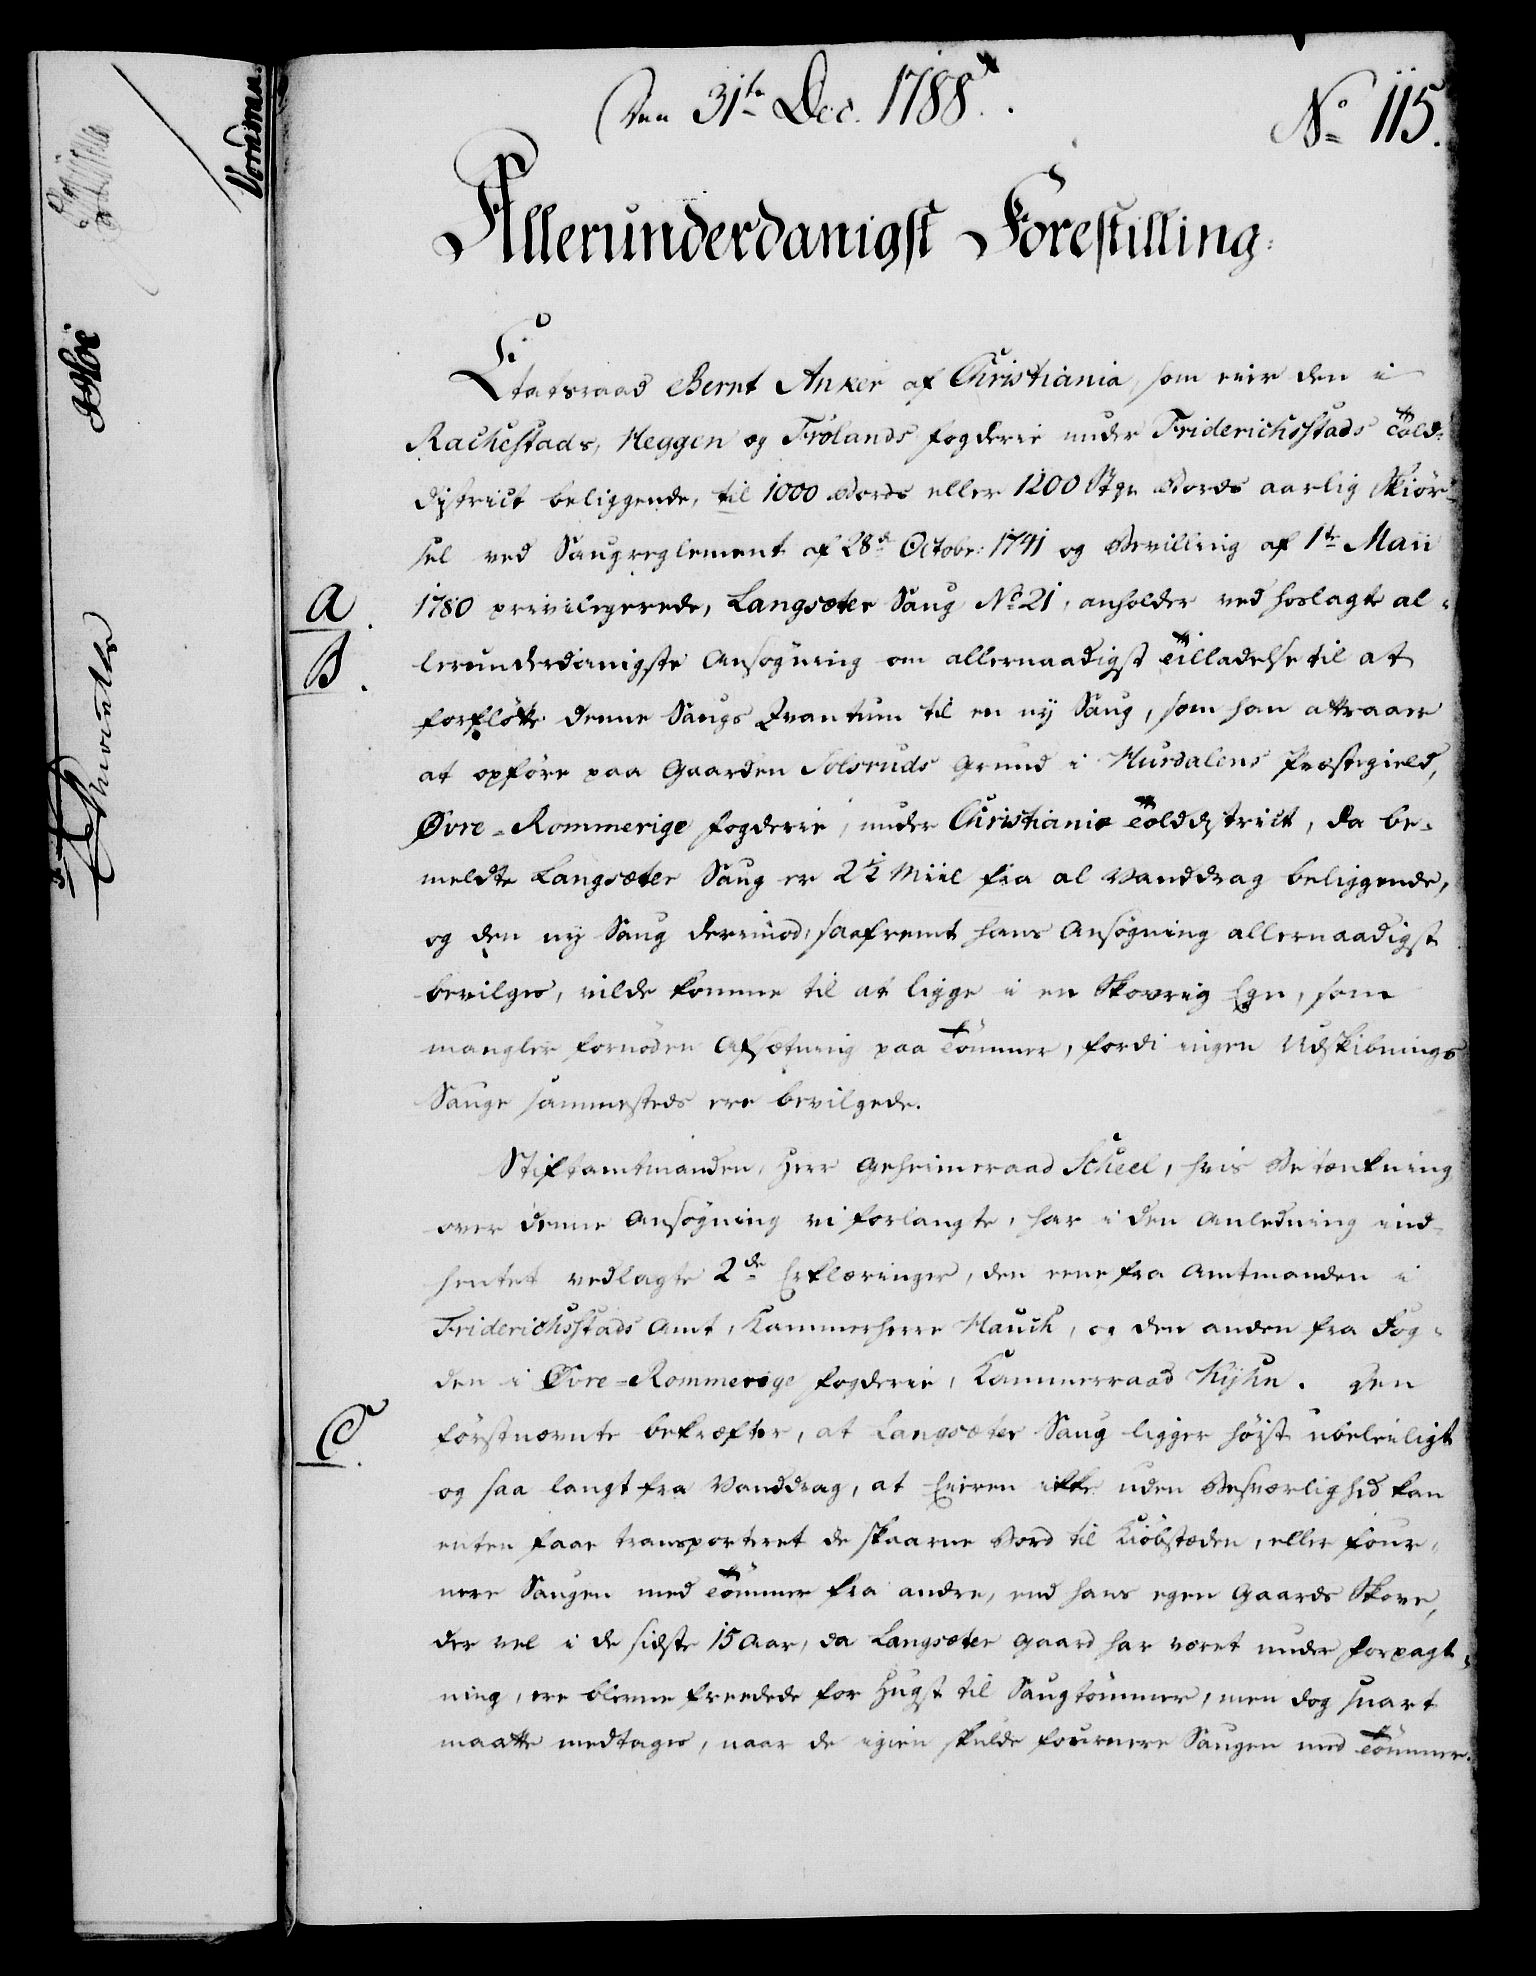 Den 31te Dec. 1788.
No 115.
Allerunderdanigst Forestilling.
Etatsraad Bernt Anker af Christiania, som eier den i
Rackestads, Heggen og Frølands fogderie under Friderichsstads Told-
district beliggende, til 1000 Bords eller 1200 Stgr Bords aarlig Skiør-
sel ved Saugreglement af 28d Octobr: 1741 og Bevilling af 1te Maii
A.
1780 privilegerede, Langsæter Saug No 21, anholder ved hoslagte al-
B.
lerunderdanigste Ansøgning om allernaadigst Tilladelse til at
forflötte denne Saugs Qvantum til en nÿ Saug, som han attraaer
at opföre paa Gaarden Solsruds Grund i Hurdalens Præstegield,
Øvre-Rommerige fogderie, under Christiania Tolddistrict, da be-
meldte Langsæter Saug er 2½ Miil fra al Vanddrag beliggende,
og den nÿ Saug derimod, saafremt hans Ansøgning allernaadigst
bevilges, vilde komme til at ligge i en Skovrig Egn, som
mangler fornöden Afsætning paa Tömmer, fordi ingen Udskibnings
Sauge sammesteds ere bevilgede.
Stiftamtmanden, Herr Geheimeraad Scheel, hvis Betænkning
over denne Ansøgning vi forlangte, har i den Anledning ind-
hentet vedlagte 2de Erklæringer, den eene fra Amtmanden i
Friderichsstads Amt, Kammerherre Hauch, og den anden fra Fog-
den i Øvre-Rommerige fogderie, Kammerraad Kÿhn. Den
C.
förstnævnte bekræfter, at Langsæter Saug ligger höist ubeleiligt
og saa langt fra Vanddrag, at Eieren ikke uden Besværlighed kan
enten faae transporteret de skaarne Bord til Kiöbstæden, eller four-
nere Saugen med Tömmer fra andre, end hans egen Gaards Skove,
der vel i de sidste 15 Aar, da Langsæter Gaard har været under Forpagt-
ning, ere blevne freedede for Hugst til Saugtömmer, men dog snart
maatte medtages, naar de igien skulde fournere Saugen med Tömmer.